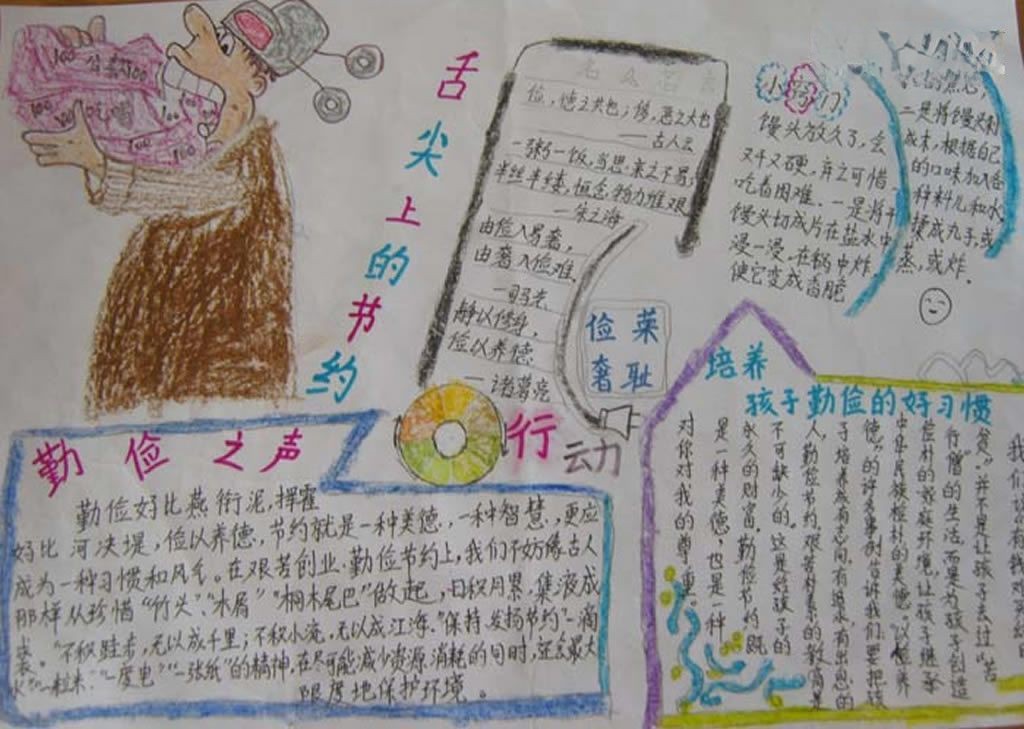 100
公款
100
吃喝
100
100
100
舌尖上的节约
行动
名人名言
俭,德之共也;侈,恶之大也
——古人云
一粥一饭,当思来之不易,
半丝半缕,恒念物力维艰
——朱之海
由俭入易奢,
由奢入俭难.
—司马光
静以修身,
俭以养德
—诸葛亮
俭莱
奢耻
小窍门
馒头放久了,会
又干又硬,弃之可惜.
吃着困难.一是将干
馒头切成片在盐水中
浸一浸.在锅中炸.
使它变成香脆
二是将馒头剁
成末,根据自己
的口味加入各
种料儿和水
揉成丸子,或
蒸,或炸.
勤俭之声
勤俭好比燕衔泥,挥霍
好比河决堤,俭以养德,节约就是一种美德,一种智慧,更应
成为一种习惯和风气。在艰苦创业.勤俭节约上,我们不妨像古人
那样从珍惜“竹头”“木屑”“桐木尾巴”做起,日积月累.集液成
裘。“不积跬步,无以成千里;不积小流,无以成江海.”保持.发扬节约“一滴
水”“一粒米”“一度电”“一张纸”的精神,在尽可能减少资源消耗的同时,还会最大
限度地保护环境。
培养
孩子勤俭的好习惯
贫”并不是让孩子去过“苦
行僧”的生活,而是为孩子创造
俭朴的家庭环境,让孩子继承
中华民族俭朴的美德。“以俭养
德”的许多事例告诉我们:要把孩
子培养成有志向.有追求.有出息的
人,勤俭节约.艰苦朴素的教育是
不可缺少的。这是给孩子的
永久的财富。勤俭节约既
是一种美德,也是一种
对你对我的尊重。